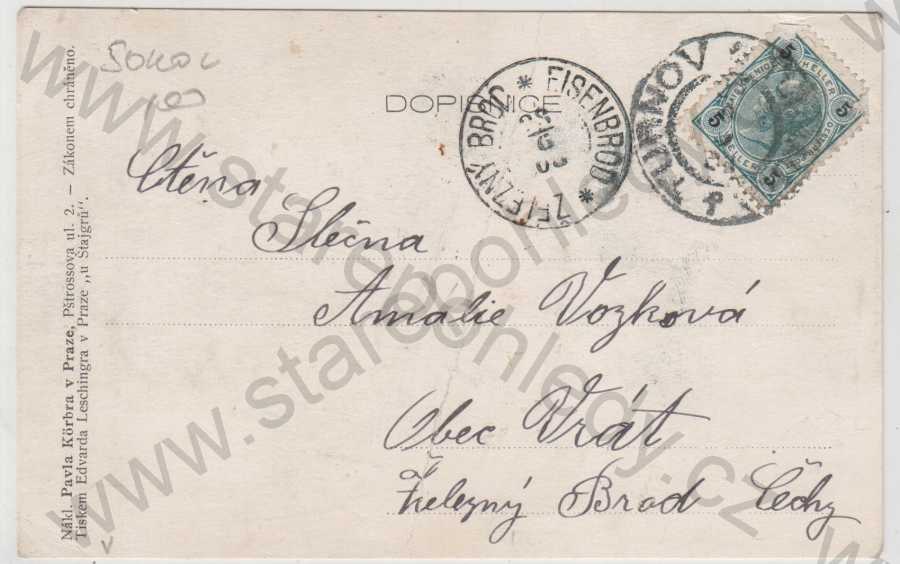 SOKOL
DOPISNICE
EISENBROD * ŽELEZNÝ BROD *
TURNOV
5 HELLER 5
Ctěna
Slečna
Amalie Vozková
Obec Vrát
Železný Brod Čechy
Nákl. Pavla Körbra v Praze, Pštrossova ul. 2. — Zákonem chráněno.
Tiskem Edvarda Leschingra v Praze „u Štajgrů“.
www.starepohledy.cz